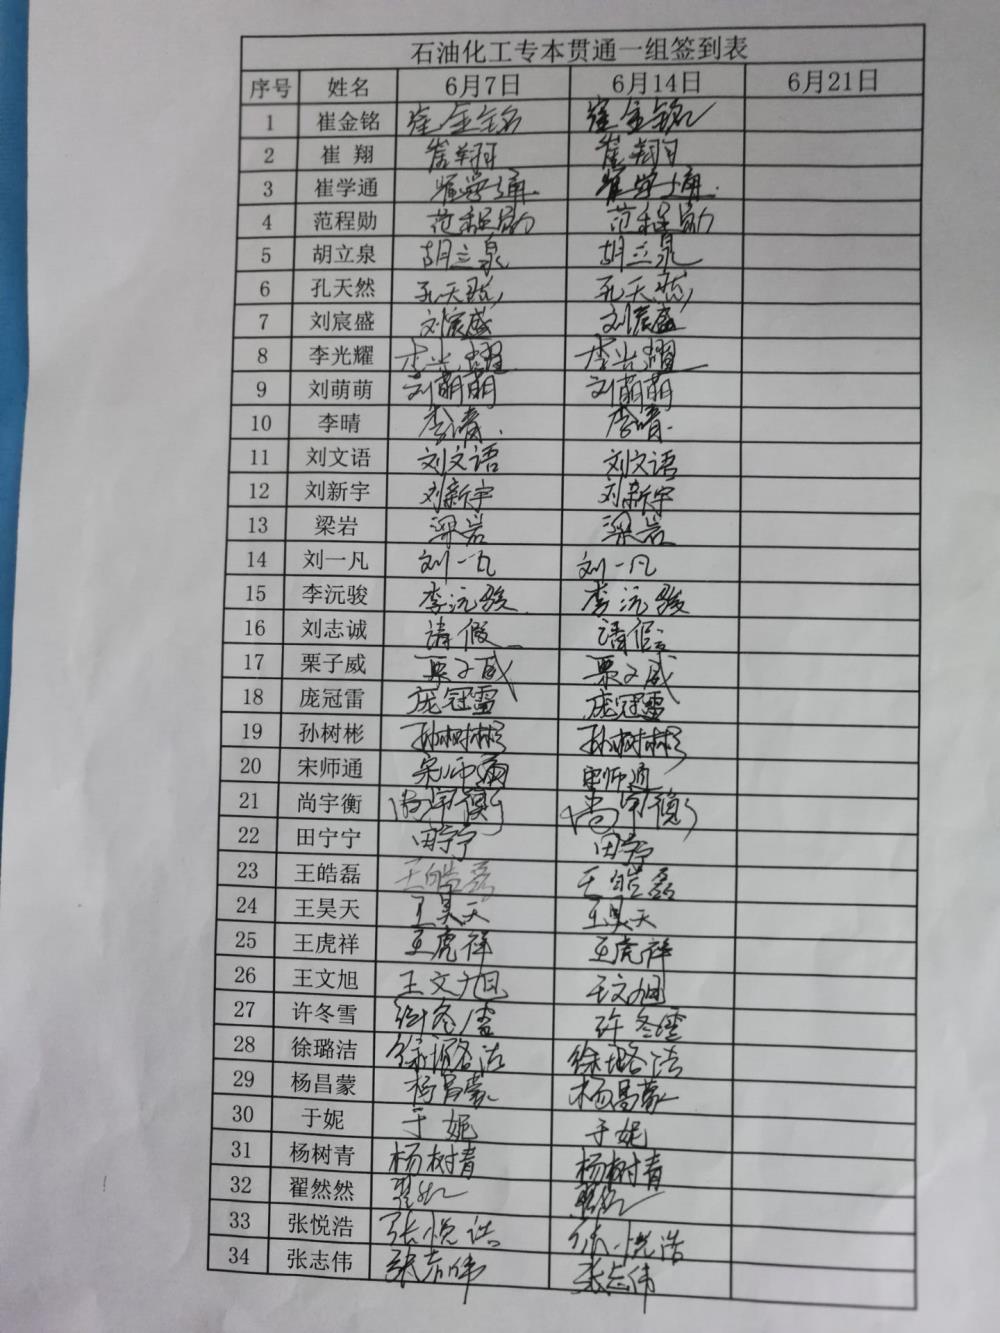 石油化工专本贯通一组签到表
序号 姓名 6月7日 6月14日 6月21日
1 崔金铭 崔金铭 崔金铭
2 崔 翔 崔翔 崔翔
3 崔学通 崔学通 崔学通
4 范程勋 范程勋 范程勋
5 胡立泉 胡立泉 胡立泉
6 孔天然 孔天然 孔天然
7 刘宸盛 刘宸盛 刘宸盛
8 李光耀 李光耀 李光耀
9 刘萌萌 刘萌萌 刘萌萌
10 李晴 李晴 李晴
11 刘文语 刘文语 刘文语
12 刘新宇 刘新宇 刘新宇
13 梁岩 梁岩 梁岩
14 刘一凡 刘一凡 刘一凡
15 李沅骏 李沅骏 李沅骏
16 刘志诚 请假 请假
17 栗子威 栗子威 栗子威
18 庞冠雷 庞冠雷 庞冠雷
19 孙树彬 孙树彬 孙树彬
20 宋师通 宋师通 宋师通
21 尚宇衡 尚宇衡 尚宇衡
22 田宁宁 田宁宁 田宁宁
23 王皓磊 王皓磊 王皓磊
24 王昊天 王昊天 王昊天
25 王虎祥 王虎祥 王虎祥
26 王文旭 王文旭 王文旭
27 许冬雪 许冬雪 许冬雪
28 徐璐洁 徐璐洁 徐璐洁
29 杨昌蒙 杨昌蒙 杨昌蒙
30 于妮 于妮 于妮
31 杨树青 杨树青 杨树青
32 翟然然 翟然然 翟然然
33 张悦浩 张悦浩 张悦浩
34 张志伟 张志伟 张志伟